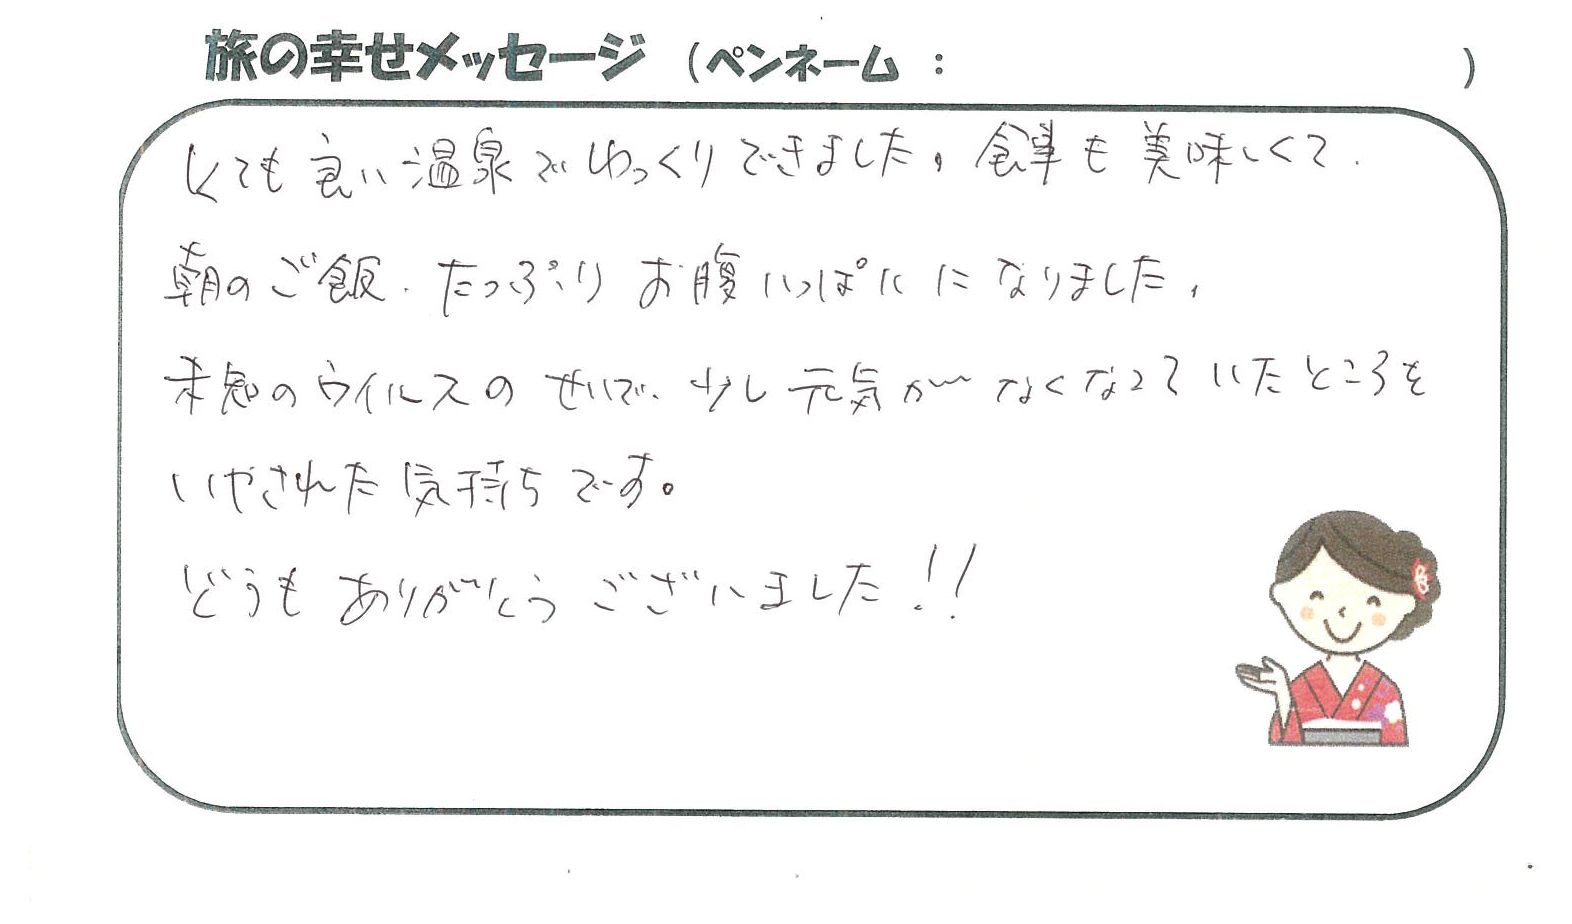 旅の幸せメッセージ (ペンネーム : )
とても良い温泉でゆっくりできました。食事も美味しくて、
朝のご飯、たっぷりお腹いっぱいになりました。
未知のウイルスのせいで、少し元気がなくなっていたところを
いやされた気持ちです。
どうもありがとうございました!!